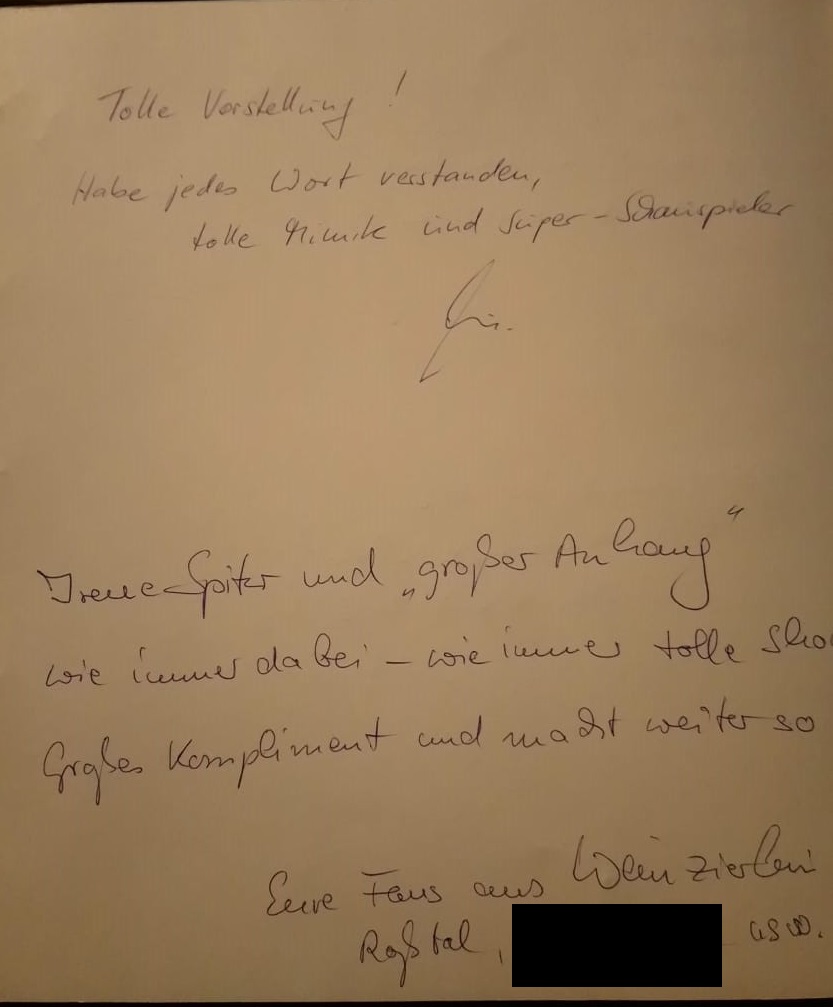 Tolle Vorstellung !
Habe jedes Wort verstanden,
tolle Mimik und Super-Schauspieler
Irene Spiter und „großer Anhang"
wie immer dabei – wie immer tolle Sho
Großes Kompliment und macht weiter so
Eure Fans aus Weinzierlein
Roßtal, usw.